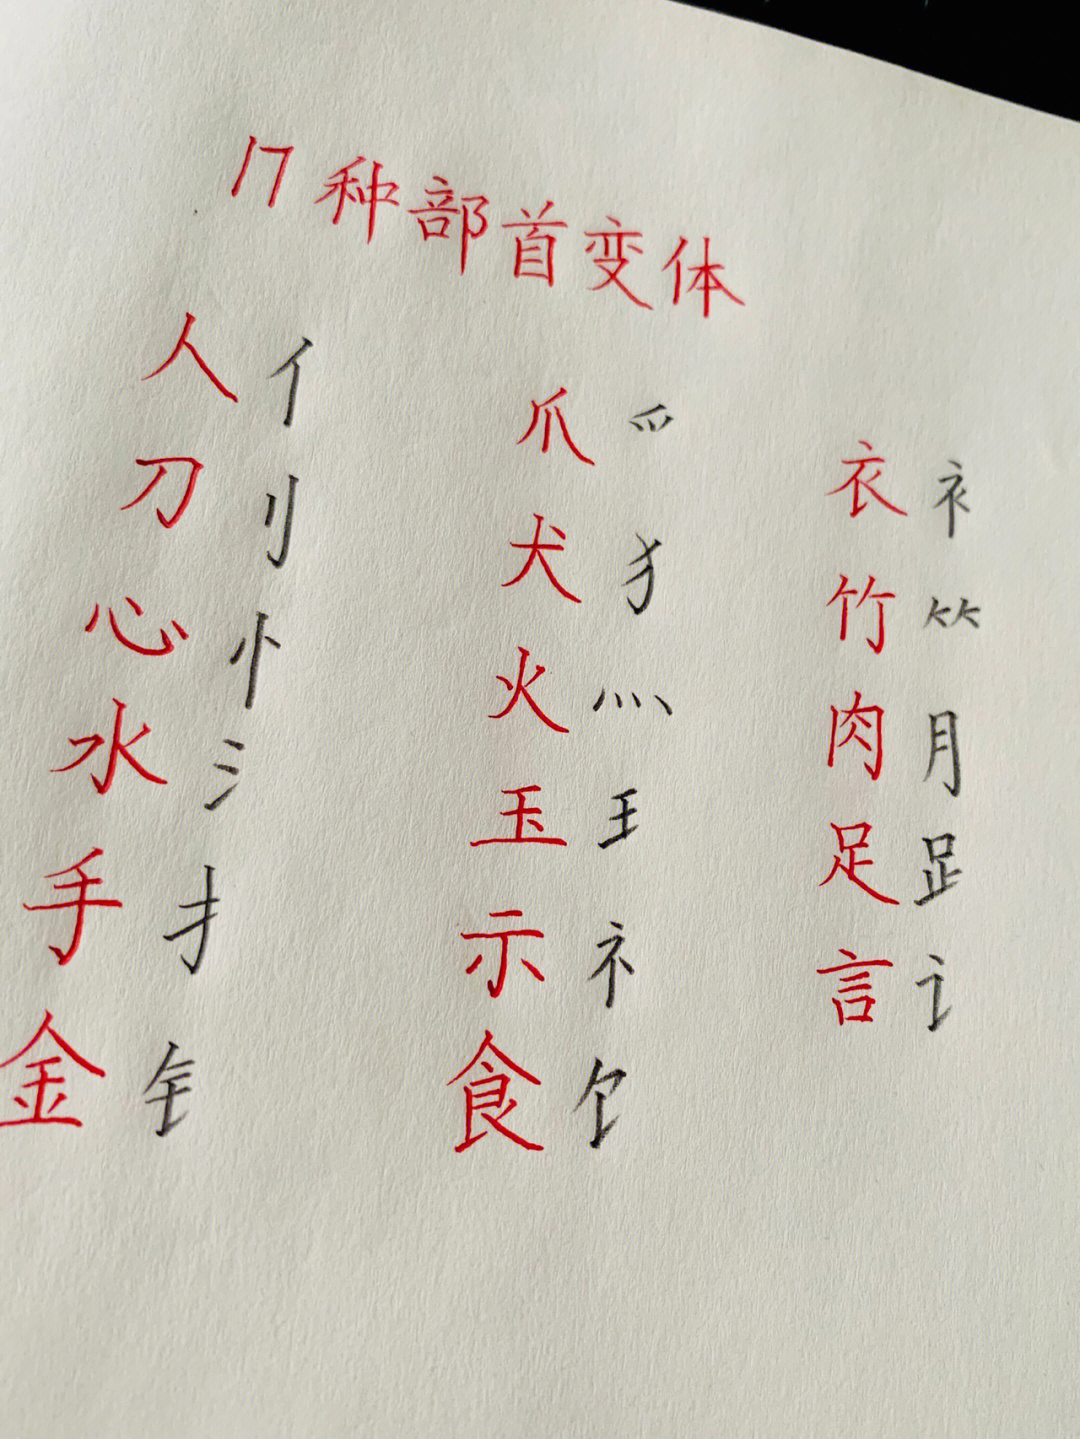 17种部首变体
人 亻
刀 刂
心 忄
水 氵
手 扌
金 钅
爪 爫
犬 犭
火 灬
玉 王
示 礻
食 饣
衣 衤
竹 ⺮
肉 月
足 𧾷
言 讠